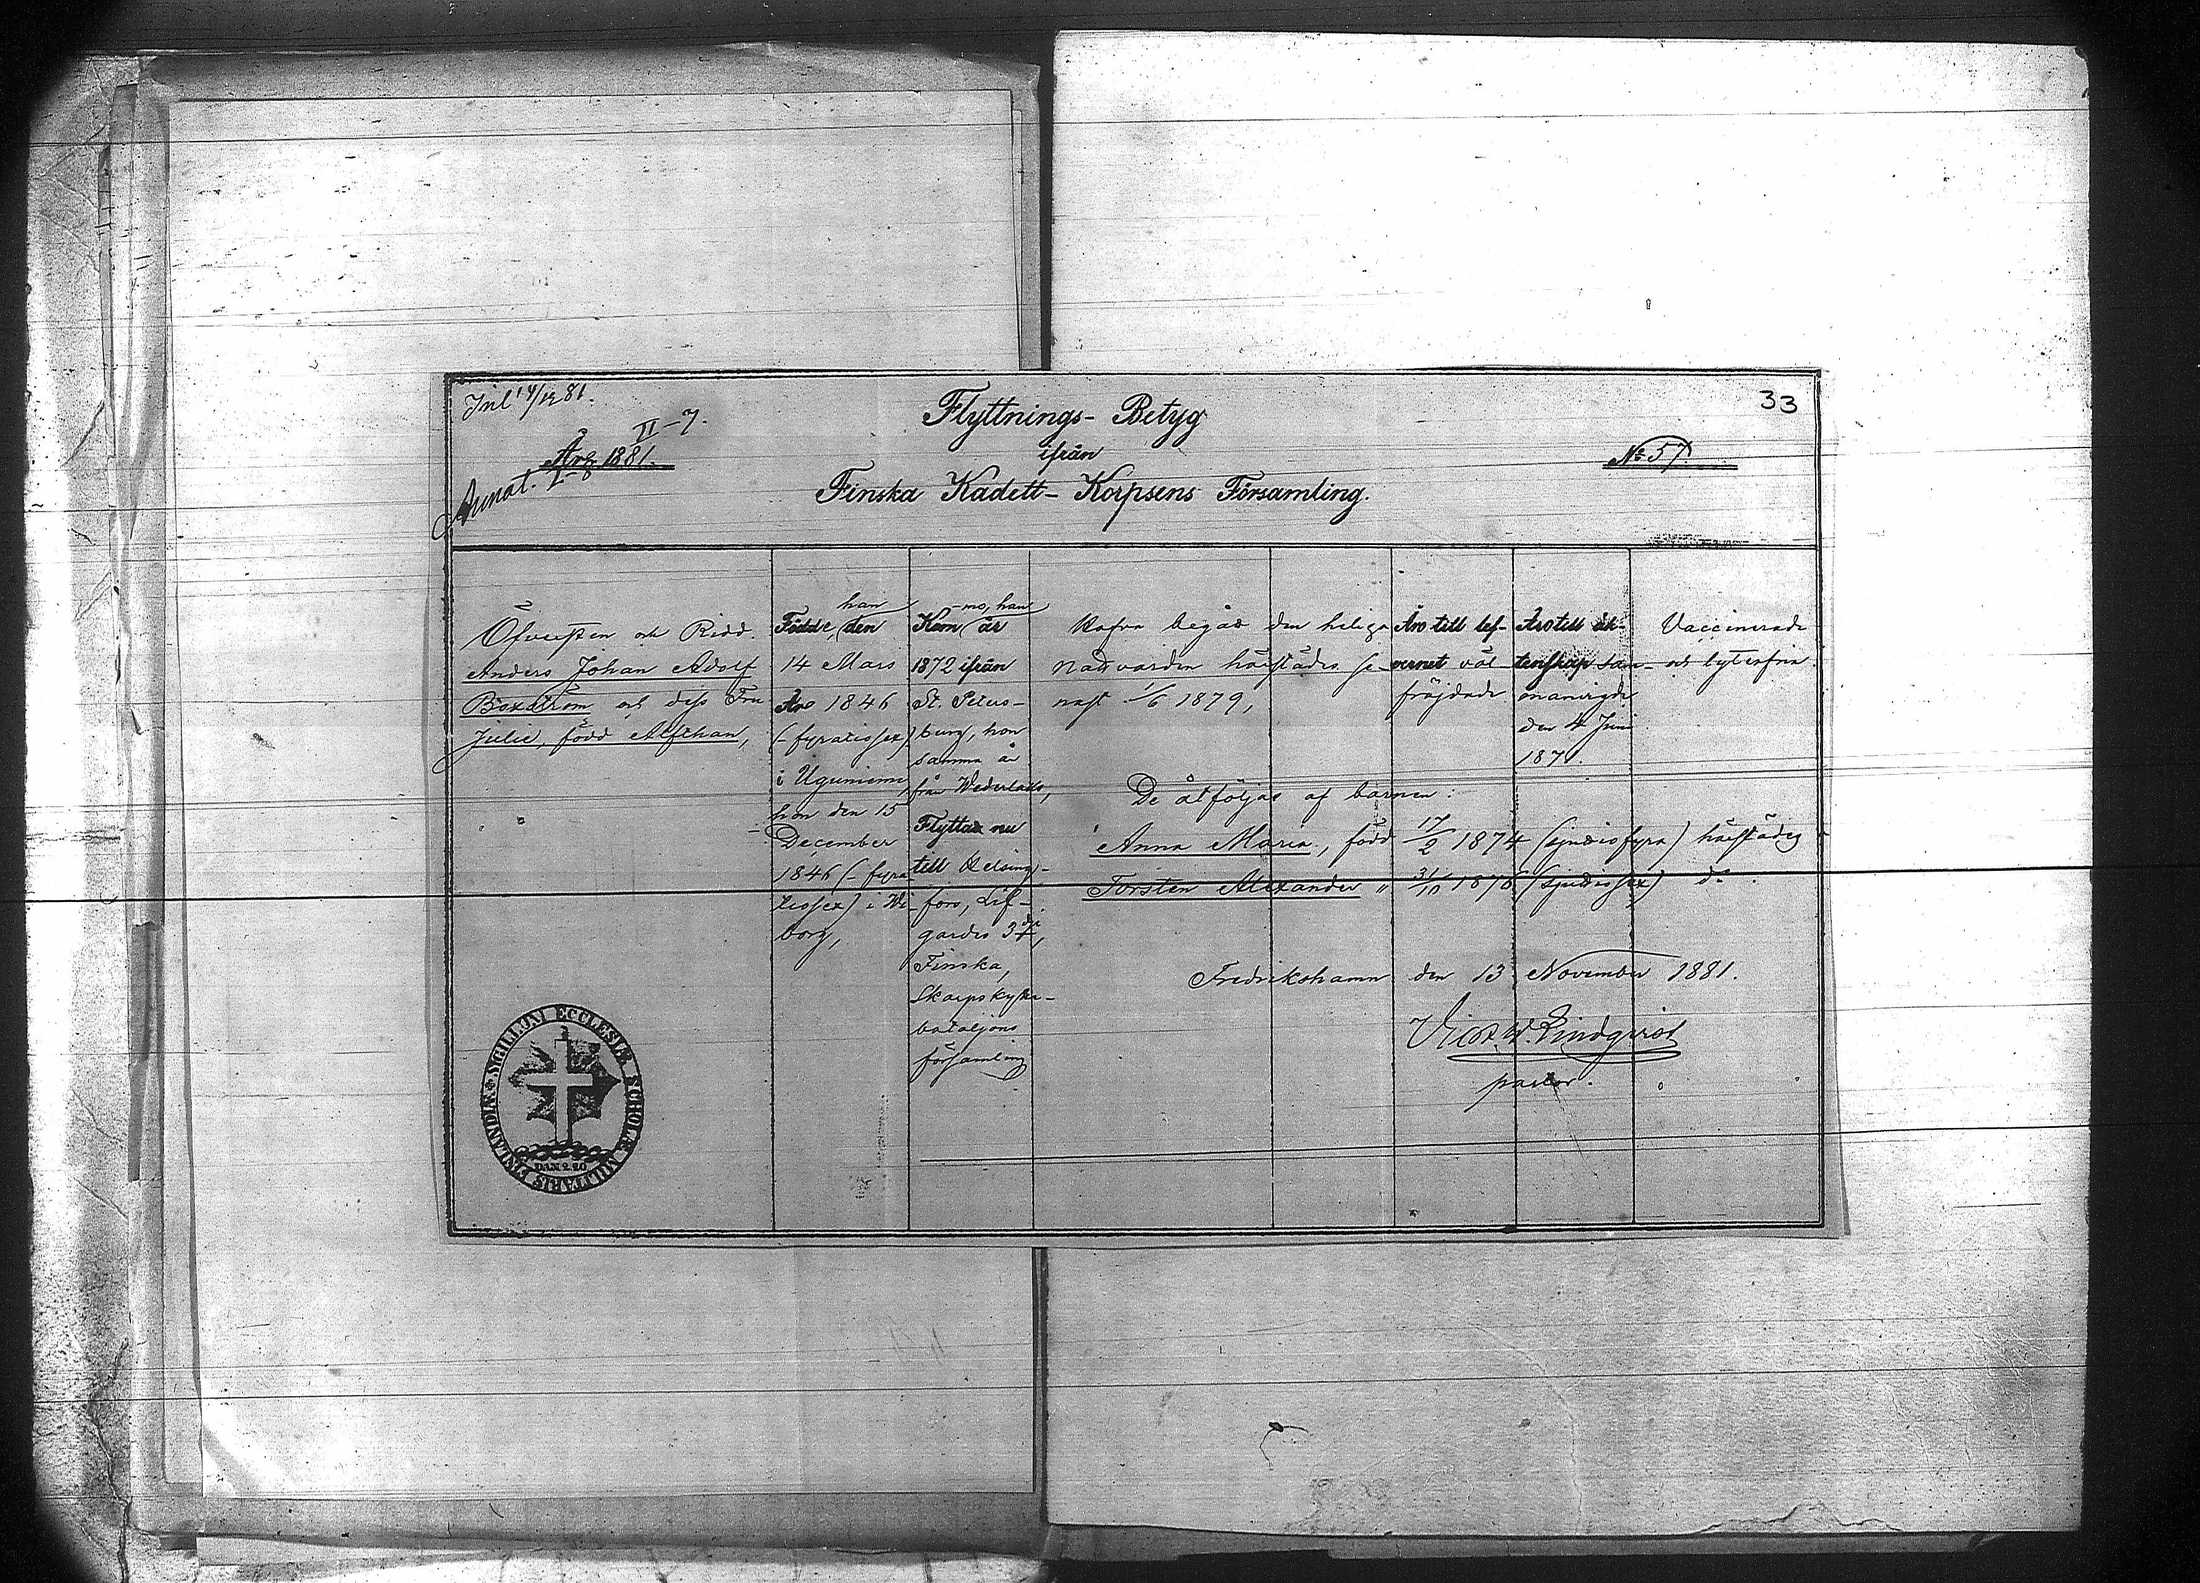 Inl 14/12 81.
33
Flyttnings-Betyg
II-7.
Års 1881.
ifrån
No 57.
Annot. I-8
Finska Kadett-Korpsens Församling.
Öfversten och Ridd.
Anders Johan Adolf
Boxström och dess Fru
Julie, född Alfthan,
han
Födde, den
14 Mars
År 1846
(-fyratiosex)
i Uguniemi,
hon den 15
December
1846 (-fyra-
tiosex) i Wi-
borg,
-mo, han
Kom år
1872 ifrån
St. Peters-
burg, hon
samma år
från Wederlaks,
Flytta nu
till Helsing-
fors, Lif-
gardes 3dje
Finska
Skarpskytte-
bataljons
församling
Hafva begått den heliga
Nattvarden härstädes se-
nast 1/6 1879,
Äro till lef-
vernet väl
fräjdade
Äro till äk-
tenskap sam-
manvigde
den 4 Juni
1871.
Vaccinerade
och lytesfria.
De åtföljas af barnen:
Anna Maria, född 17/2 1874 (sjuttiofyra) härstädes
Torsten Alexander " 31/10 1876 (sjuttiosex) d:o
Fredrikshamn den 13 November 1881.
Vict. W. Lindqvist
pastor.
SIGILLUM ECCLESIÆ SCHOLÆ MILITARIS FINLANDIÆ
DAN 2.20